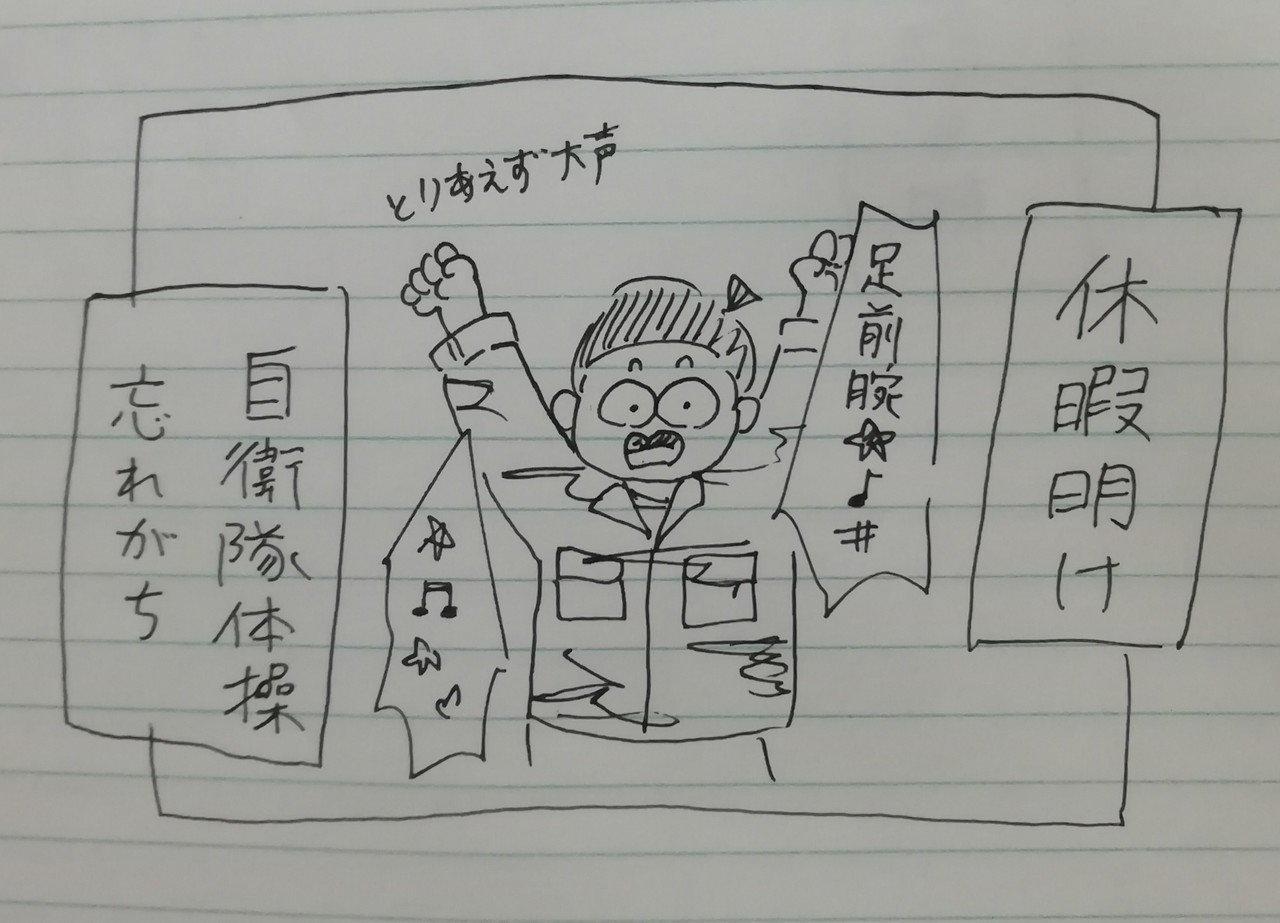 休暇明け
足前腕☆♪#
とりあえず大声
自衛隊体操
忘れがち